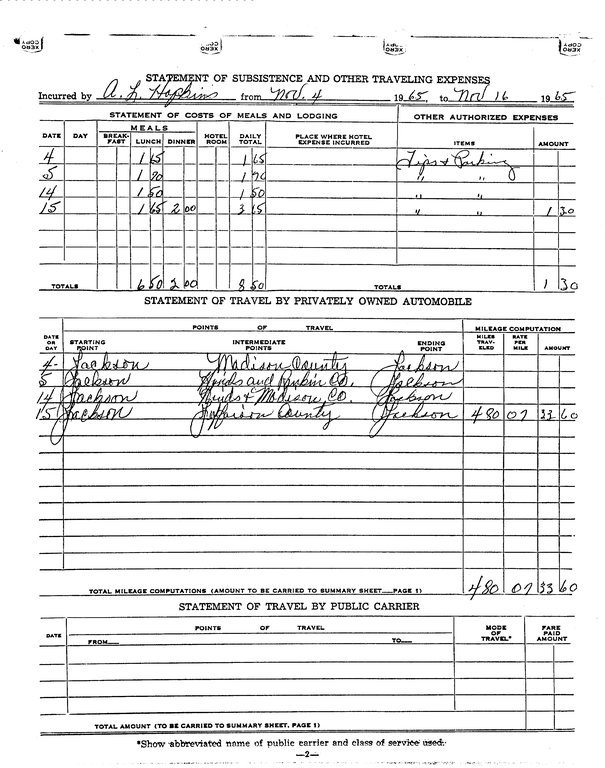 XERO COPY XERO COPY XERO COPY XERO COPY
STATEMENT OF SUBSISTENCE AND OTHER TRAVELING EXPENSES
Incurred by A. L. Hopkins from Nov. 4 1965, to Nov 16 1965
STATEMENT OF COSTS OF MEALS AND LODGING OTHER AUTHORIZED EXPENSES
DATE DAY MEALS BREAKFAST LUNCH DINNER HOTEL ROOM DAILY TOTAL PLACE WHERE HOTEL EXPENSE INCURRED ITEMS AMOUNT
4 1 65 1 65 Tips & Parking
5 1 70 1 70 " "
14 1 50 1 50 " "
15 1 65 2 00 3 65 " " 1 30
TOTALS 6 50 2 00 8 50 TOTALS 1 30
STATEMENT OF TRAVEL BY PRIVATELY OWNED AUTOMOBILE
POINTS OF TRAVEL MILEAGE COMPUTATION
DATE OR DAY STARTING POINT INTERMEDIATE POINTS ENDING POINT MILES TRAVELED RATE PER MILE AMOUNT
4- Jackson Madison County Jackson
5 Jackson Hinds and Rankin Co. Jackson
14 Jackson Hinds & Madison, CO. Jackson
15 Jackson Jefferson County Jackson 480 07 33 60
TOTAL MILEAGE COMPUTATIONS (AMOUNT TO BE CARRIED TO SUMMARY SHEET—PAGE 1) 480 07 33 60
STATEMENT OF TRAVEL BY PUBLIC CARRIER
DATE POINTS OF TRAVEL FROM— TO— MODE OF TRAVEL* FARE PAID AMOUNT
TOTAL AMOUNT (TO BE CARRIED TO SUMMARY SHEET, PAGE 1)
*Show abbreviated name of public carrier and class of service used.
—2—